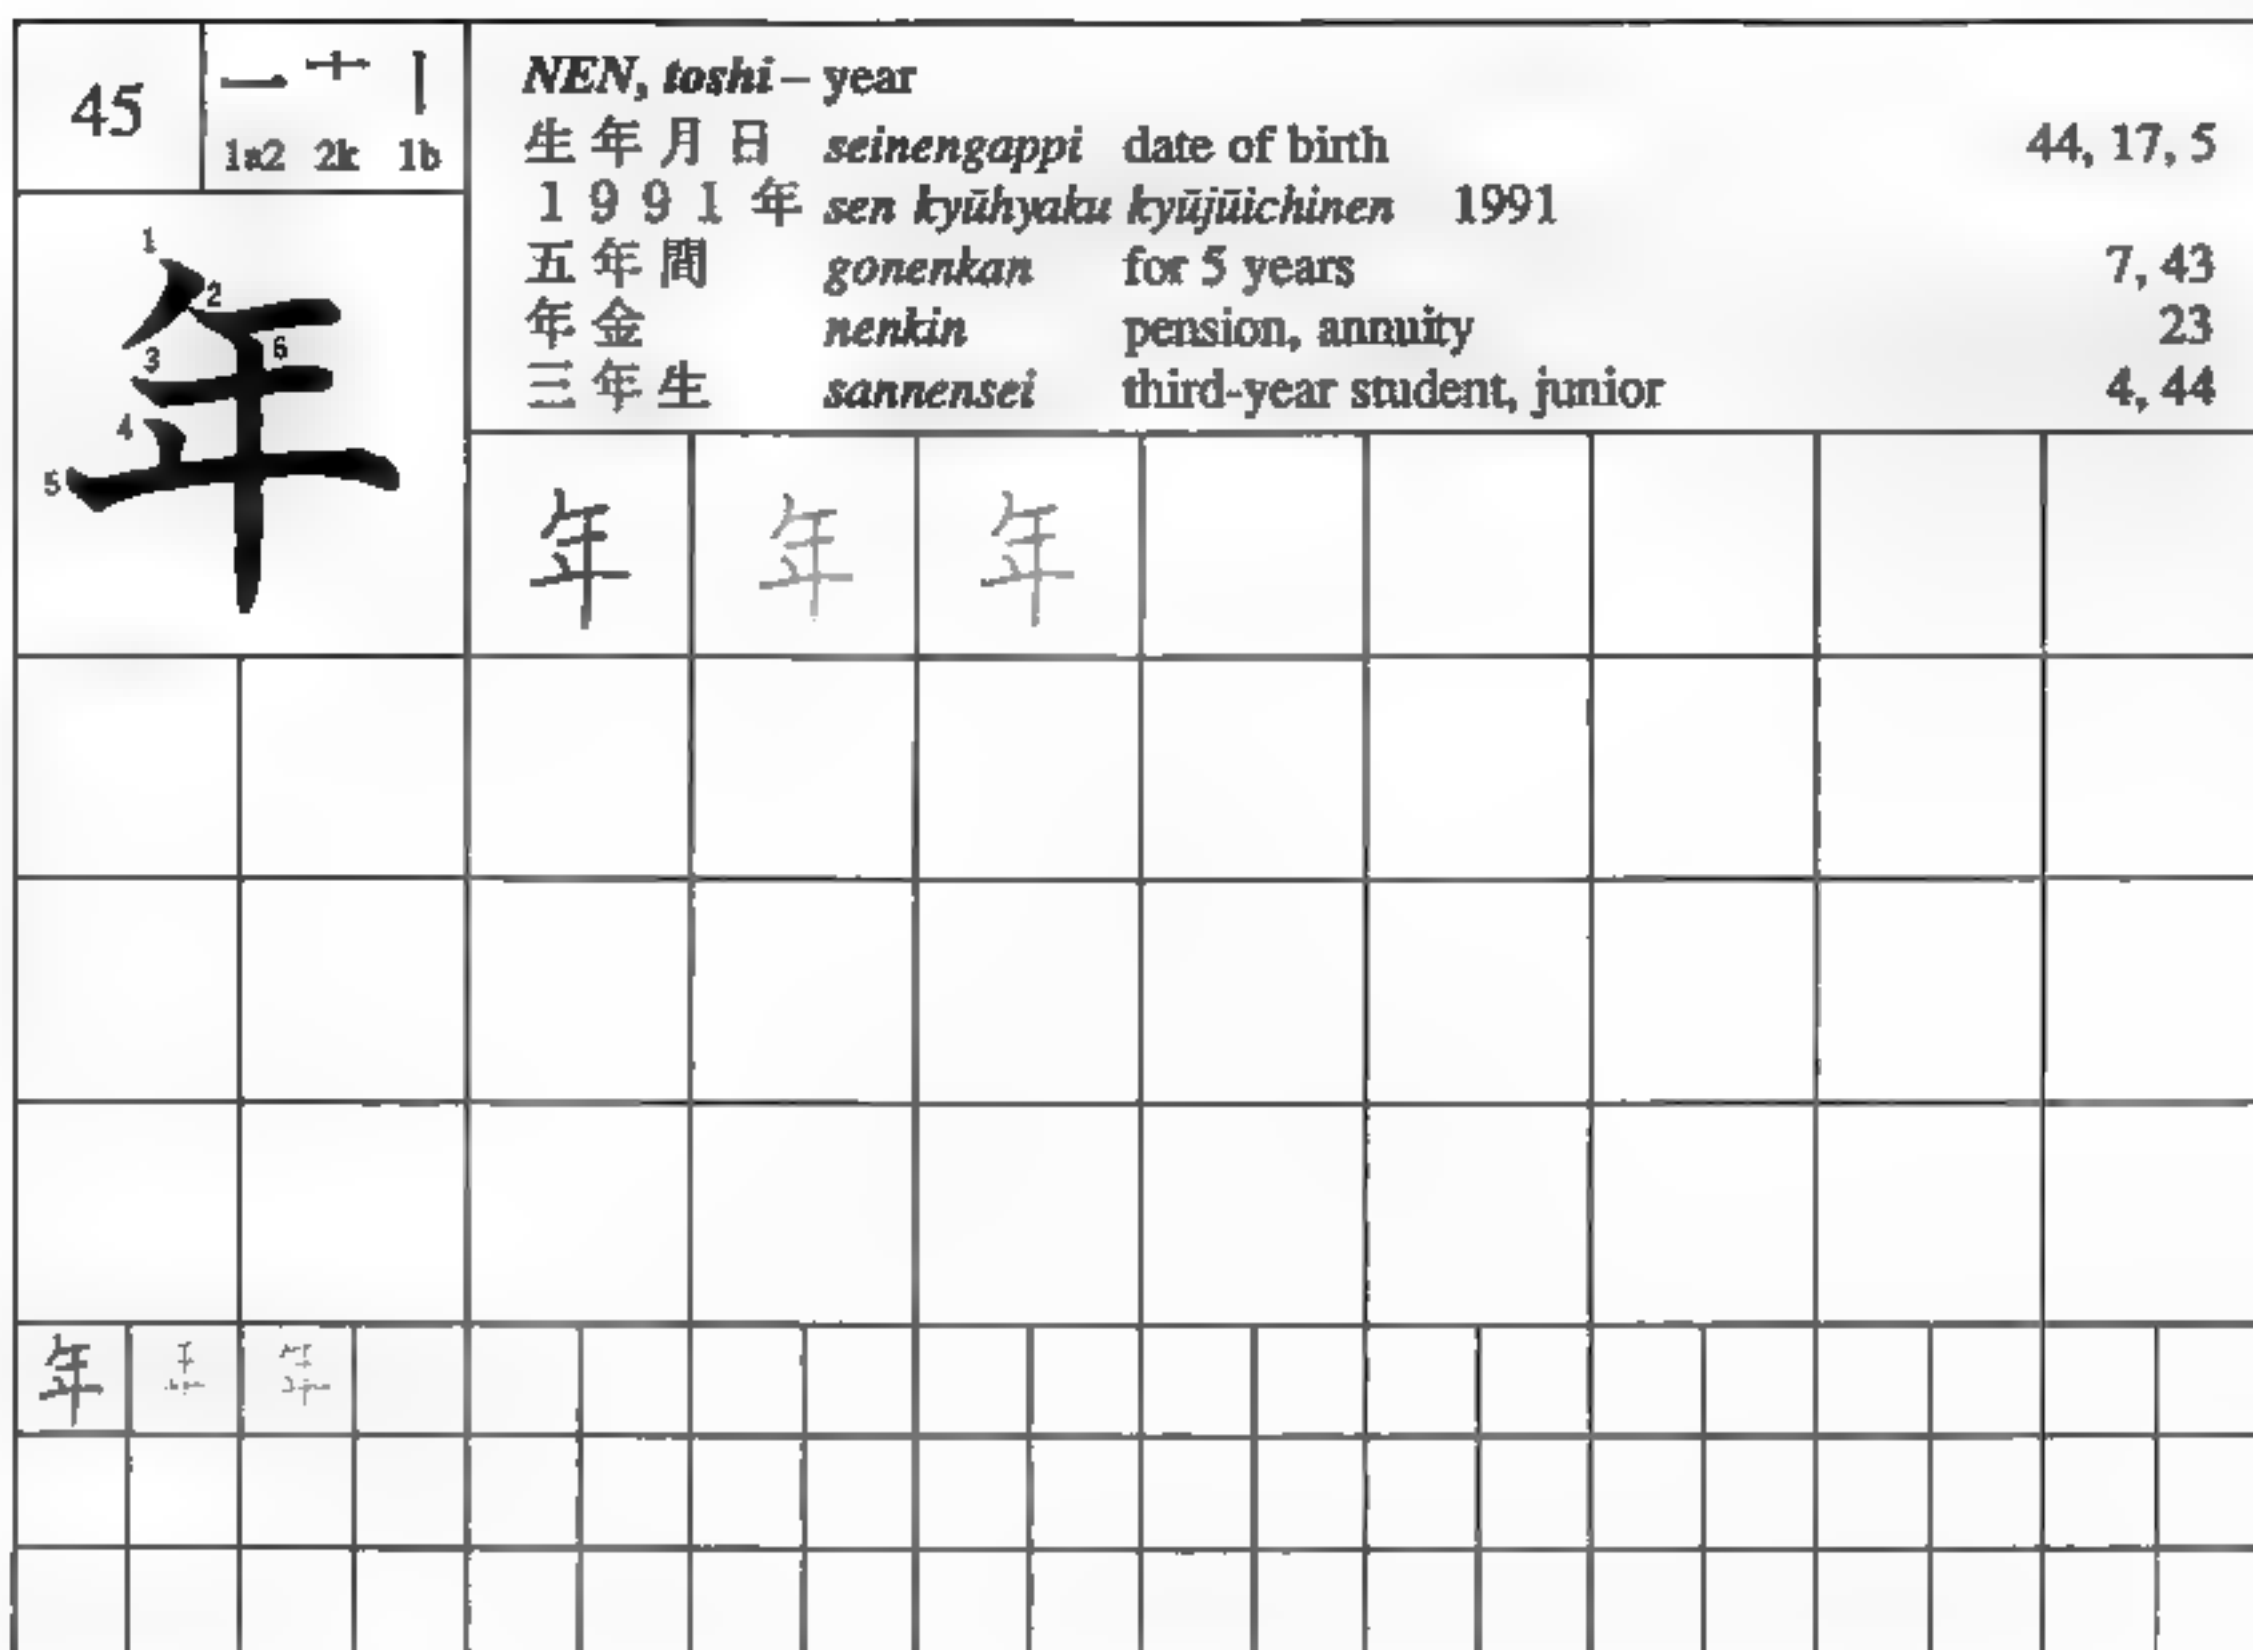 45
一 十 丨
1a2 2k 1b
NEN, toshi – year
生年月日 seinengappi date of birth 44, 17, 5
1991年 sen kyūhyaku kyūjūichinen 1991
五年間 gonenkan for 5 years 7, 43
年金 nenkin pension, annuity 23
三年生 sannensei third-year student, junior 4, 44
1
2
3
6
4
5
年
年 年 年
年 年 年